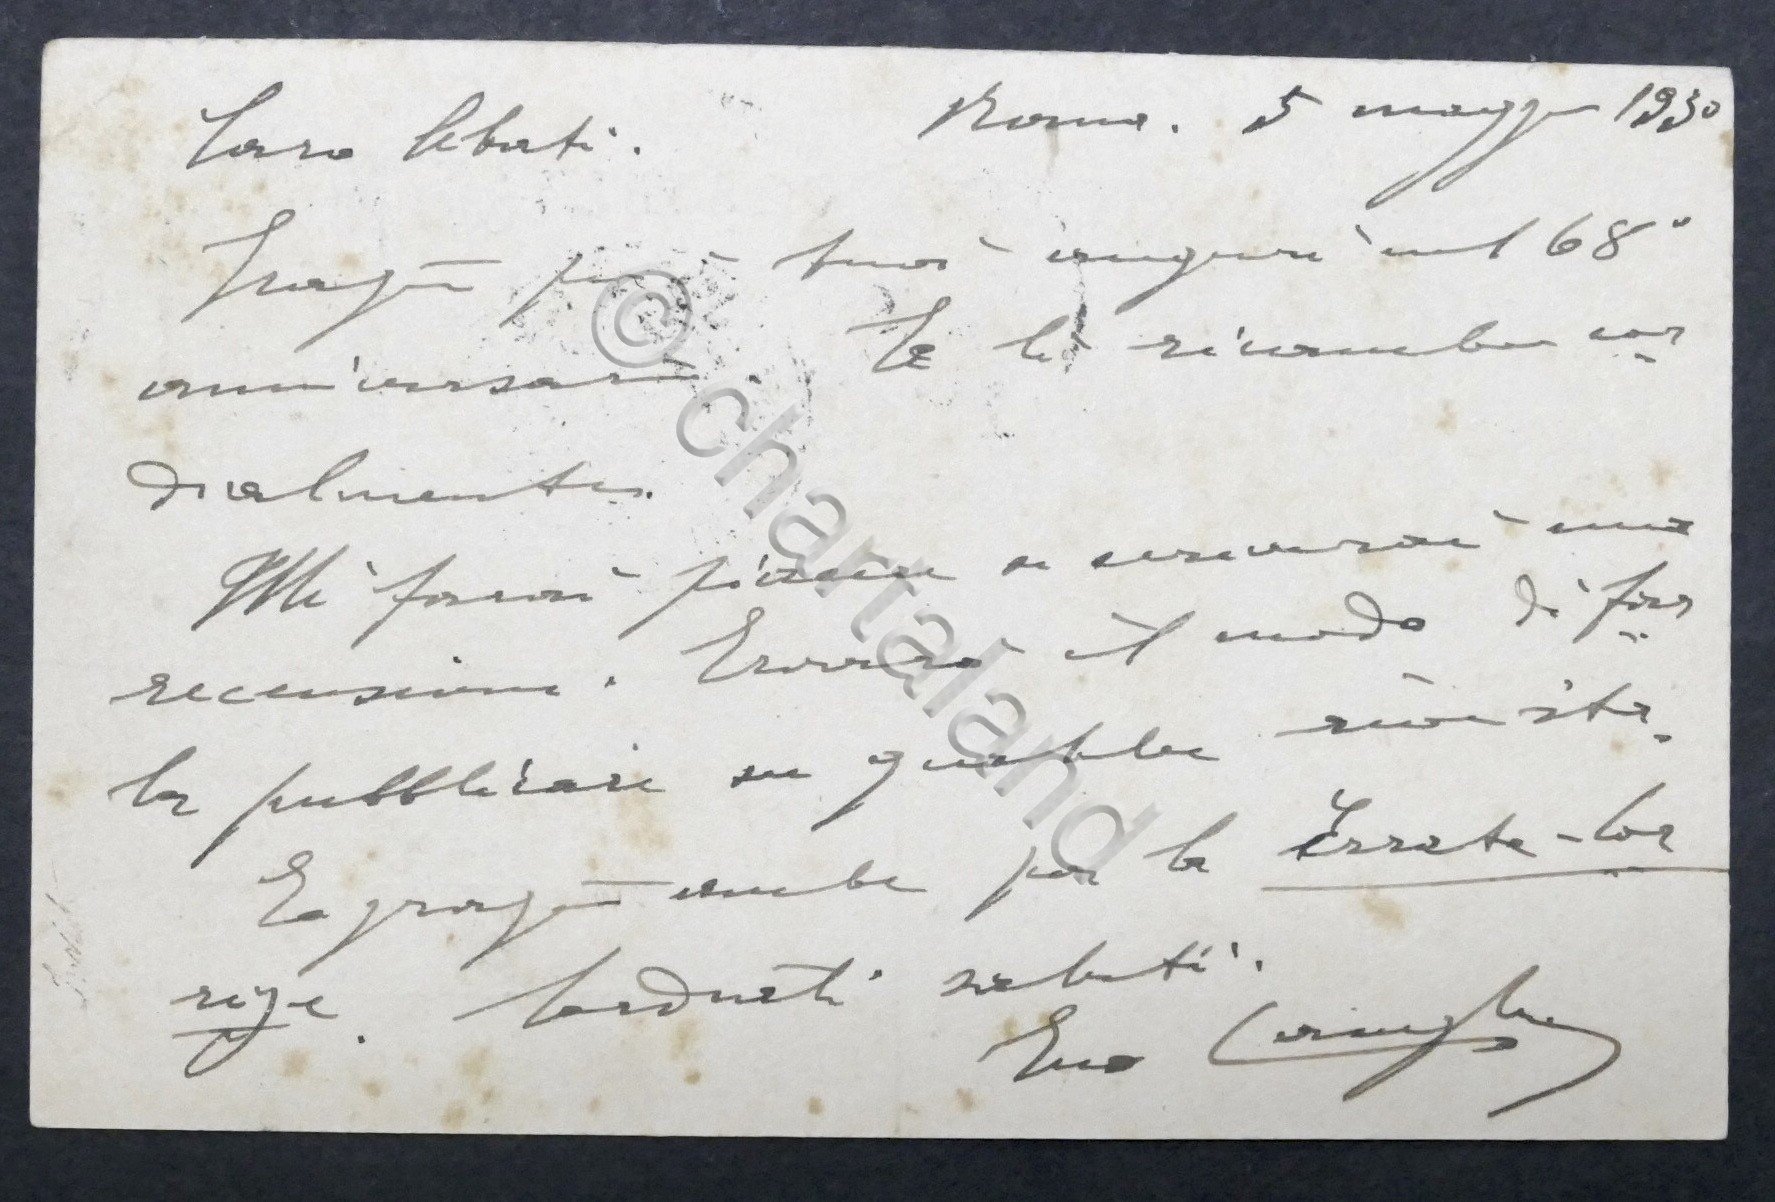 Caro Cebati. Roma. 5 maggio 1930
Grazie pei tuoi auguri nel 68°
anniversario. Te li ricambio cor
dialmente.
Mi farai piacere se scriverai una
recensione. Troverò il modo di far
la pubblicare su qualche rivista.
E grazie anche per la Errata-Cor
rige. Cordiali saluti.
Tuo
© chartaland